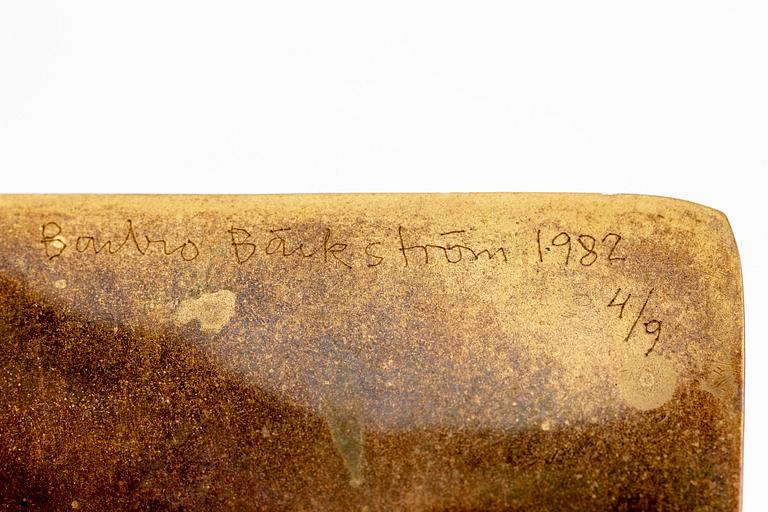 Barbro Bäckström 1982
4/9